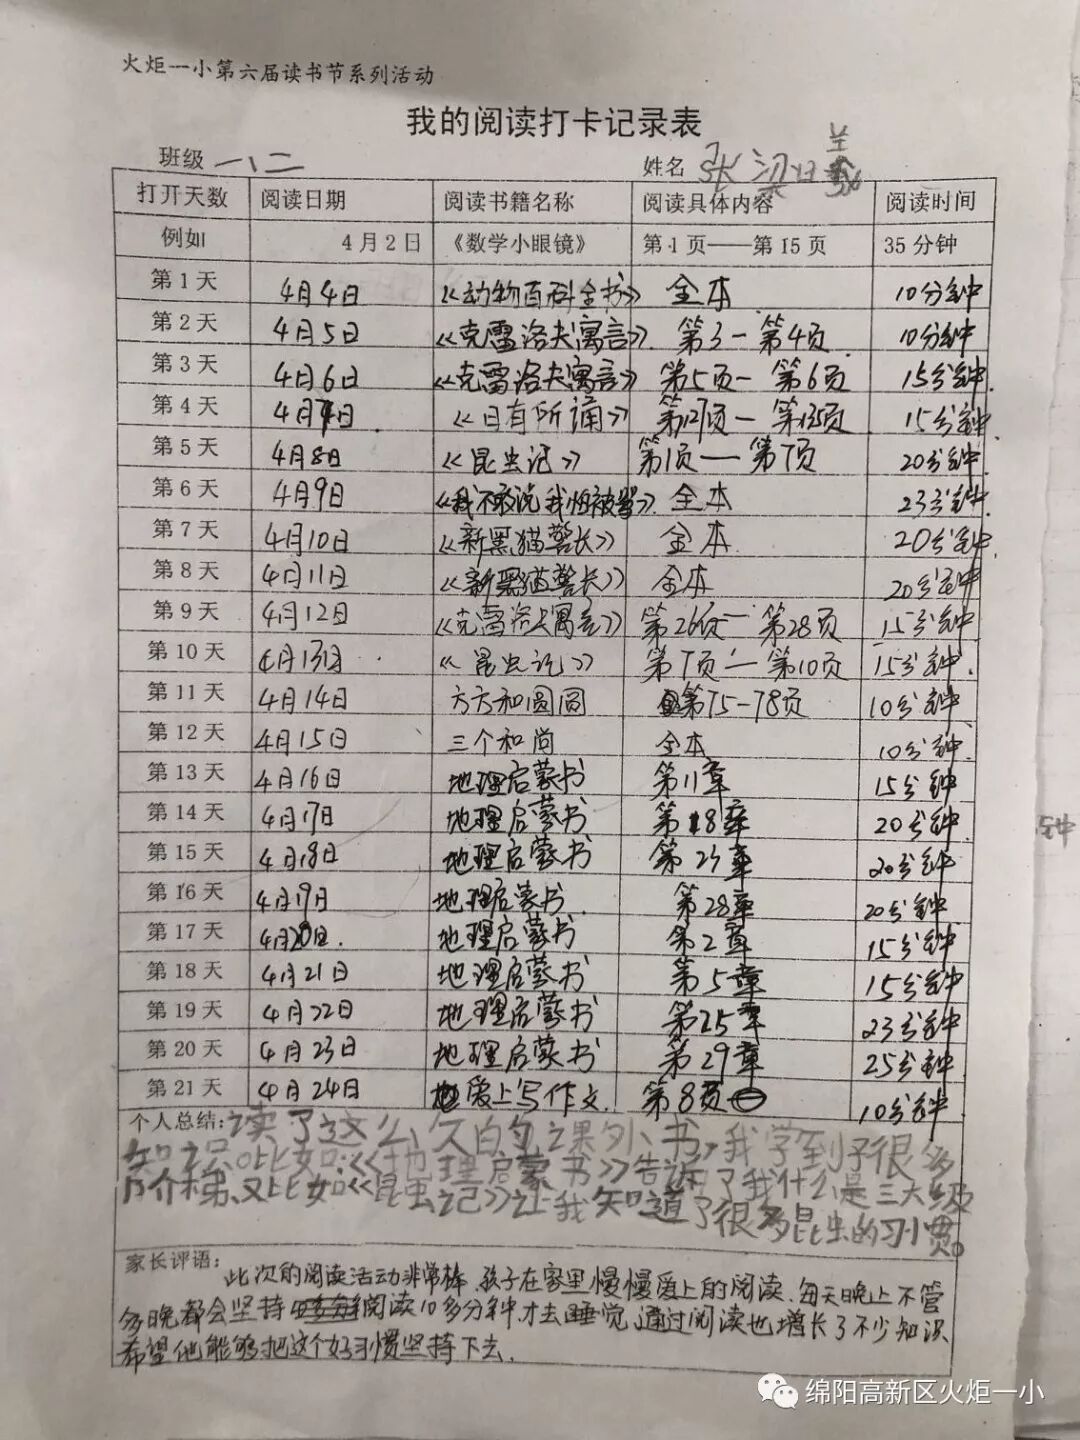 火炬一小第六届读书节系列活动
我的阅读打卡记录表
班级 一、二 姓名 张梁
打开天数 阅读日期 阅读书籍名称 阅读具体内容 阅读时间
例如 4月2日 《数学小眼镜》 第1页——第15页 35分钟
第1天 4月4日 《动物百科全书》 全本 10分钟
第2天 4月5日 《克雷洛夫寓言》. 第3-第4页. 10分钟
第3天 4月6日 《克雷洛夫寓言》 第5页-第6页 15分钟.
第4天 4月7日. 《日有所诵》 第127页-第135页 15分钟.
第5天 4月8日 《昆虫记》 第1页—第7页 20分钟.
第6天 4月9日 《我不敢说我怕被骂》. 全本 23分钟.
第7天 4月10日 《新黑猫警长》 全本. 20分钟.
第8天 4月11日 《新黑猫警长》 全本 20分钟
第9天 4月12日 《克雷洛夫寓言》 第26页-第28页 15分钟
第10天 4月13日. 《昆虫记》 第7页-第10页 15分钟.
第11天 4月14日 方方和圆圆 第75-78页 10分钟
第12天 4月15日 三个和尚 全本 10分钟.
第13天 4月16日 地理启蒙书 第11章 15分钟
第14天 4月17日 地理启蒙书 第18章 20分钟.
第15天 4月18日 地理启蒙书 第23章 20分钟
第16天 4月19日 地理启蒙书. 第28章 20分钟
第17天 4月20日. 地理启蒙书 第2章 15分钟
第18天 4月21日 地理启蒙书 第5章 15分钟
第19天 4月22日 地理启蒙书 第25章 23分钟
第20天 4月23日 地理启蒙书 第29章 25分钟
第21天 4月24日 爱上写作文. 第8页 10分钟
个人总结:读了这么久的课外书,我学到了很多
知识。比如:《地理启蒙书》告诉了我什么是三大级
阶梯、又比如《昆虫记》让我知道了很多昆虫的习惯。
家长评语: 此次的阅读活动非常棒,孩子在家里慢慢爱上的阅读.每天晚上不管
多晚都会坚持阅读10多分钟才去睡觉,通过阅读也增长了不少知识.
希望他能够把这个好习惯坚持下去.
钟
绵阳高新区火炬一小